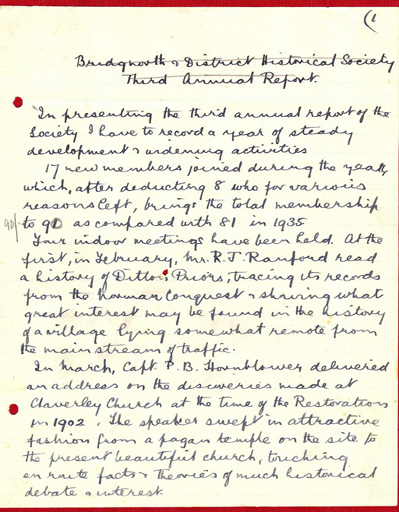 (1
Bridgnorth & District Historical Society
Third Annual Report.
"In presenting the third annual report of the
Society I have to record a year of steady
development & widening activities
17 new members joined during the year,
which, after deducting 8 who for various
reasons left, brings the total membership
90/- to 90 as compared with 81 in 1935
Four indoor meetings have been held. At the
first, in February, Mr. R. J. Ranford read
a history of Ditton Priors, tracing its records
from the Norman Conquest & showing what
great interest may be found in the history
of a village lying somewhat remote from
the main stream of traffic.
In March, Capt P. B. Hornblower delivered
an address on the discoveries made at
Claverley Church at the time of the Restoration
in 1902. The speaker swept in attractive
fashion from a pagan temple on the site to
the present beautiful church, touching
en route facts & theories of much historical
debate & interest.